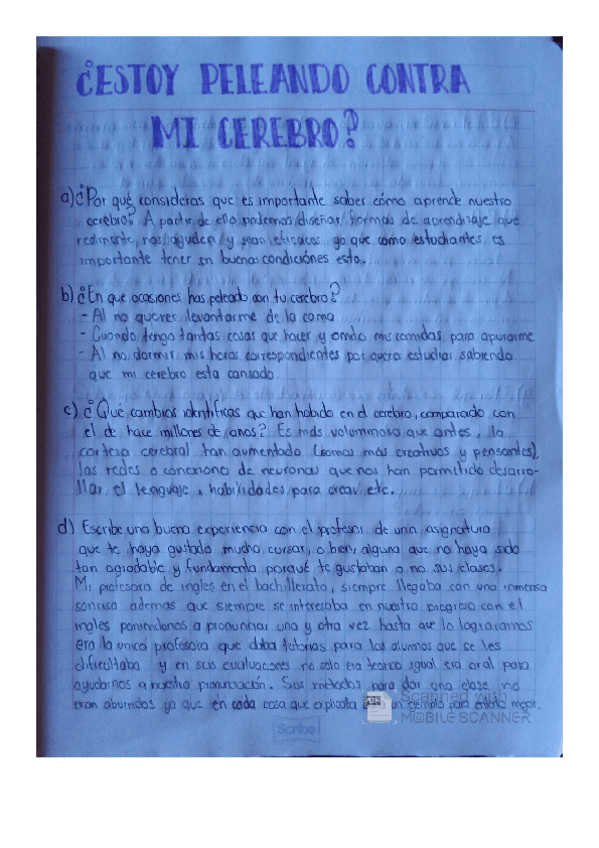 ¿ESTOY PELEANDO CONTRA
MI CEREBRO?
a) ¿Por qué consideras que es importante saber cómo aprende nuestro
cerebro? A partir de ello podemos diseñar formas de aprendizaje que
realmente nos ayuden y sean eficaces ya que como estudiantes es
importante tener en buenas condiciónes esto.
b) ¿En que ocasiones has peleado con tu cerebro?
- Al no querer levantarme de la cama
- Cuando tengo tantas cosas que hacer y omito mis comidas para apurarme
- Al no dormir mis horas correspondientes por querer estudiar sabiendo
que mi cerebro esta cansado.
c) ¿Qué cambios identificas que han habido en el cerebro, comparado con
el de hace millones de años? Es más voluminoso que antes, la
corteza cerebral han aumentado (somos más creativos y pensantes),
las redes o conexiono de neuronas que nos han permitido desarro-
llar el lenguaje, habilidades para crear, etc.
d) Escribe una buena experiencia con el profesor de una asignatura
que te haya gustado mucho cursar, o bien, alguna que no haya sido
tan agradable y fundamenta porqué te gustaban o no sus clases.
Mi profesora de ingles en el bachillerato, siempre llegaba con una inmensa
sonrisa ademas que siempre se interesaba en nuestro progreso con el
ingles poniendonos a pronunciar una y otra vez hasta que lo lograramos
era la unica profesora que daba tutorias para los alumnos que se les
dificultaba y en sus evaluaciones no solo era teorico igual era oral para
ayudarnos a nuestra pronunciación. Sus metodos para dar una clase no
eran aburridos ya que en cada cosa que explicaba un ejemplo para
Scanned with
MOBILE SCANNER
Scribe